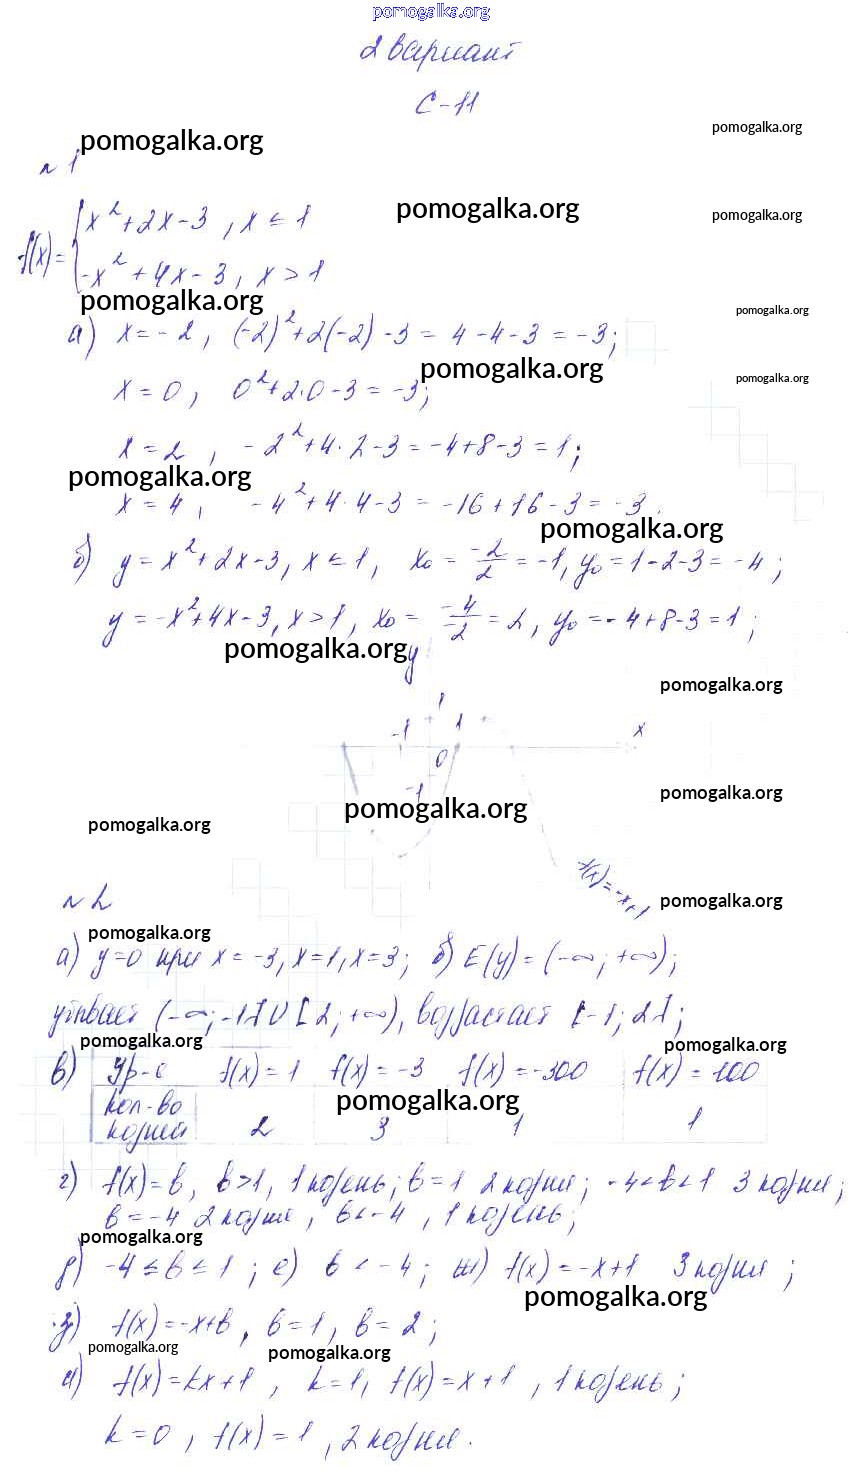 pomogalka.org
2 вариант
С-11
pomogalka.org
pomogalka.org
№ 1
pomogalka.org
pomogalka.org
f(x) = { x² + 2x - 3 , x ≤ 1
-x² + 4x - 3, x > 1
pomogalka.org
pomogalka.org
а) x = -2, (-2)² + 2(-2) - 3 = 4 - 4 - 3 = -3;
pomogalka.org
pomogalka.org
x = 0, 0² + 2·0 - 3 = -3;
x = 2, -2² + 4·2 - 3 = -4 + 8 - 3 = 1;
pomogalka.org
x = 4, -4² + 4·4 - 3 = -16 + 16 - 3 = -3.
pomogalka.org
б) y = x² + 2x - 3, x ≤ 1, x₀ = -2/2 = -1, y₀ = 1 - 2 - 3 = -4;
y = -x² + 4x - 3, x > 1, x₀ = -4/-2 = 2, y₀ = -4 + 8 - 3 = 1;
pomogalka.org
y
pomogalka.org
1
-1 1 x
0
-1
pomogalka.org
pomogalka.org
pomogalka.org
f(x) = -x+1
№ 2
pomogalka.org
pomogalka.org
а) y=0 при x = -3, x=1, x=3; б) E(y) = (-∞; +∞);
убывает (-∞; -1] U [2; +∞), возрастает [-1; 2];
pomogalka.org
pomogalka.org
в) Ур-е f(x) = 1 f(x) = -3 f(x) = -300 f(x) = 100
pomogalka.org
кол-во
корней 2 3 1 1
г) f(x) = b, b>1, 1 корень; b = 1 2 корня; -4 < b < 1 3 корня;
b = -4 2 корня, b < -4, 1 корень;
pomogalka.org
д) -4 ≤ b ≤ 1; е) b < -4; ж) f(x) = -x+1 3 корня;
pomogalka.org
з) f(x) = -x+b, b = 1, b = 2;
pomogalka.org
pomogalka.org
и) f(x) = kx + 1, k = 1, f(x) = x + 1, 1 корень;
k = 0, f(x) = 1, 2 корня.